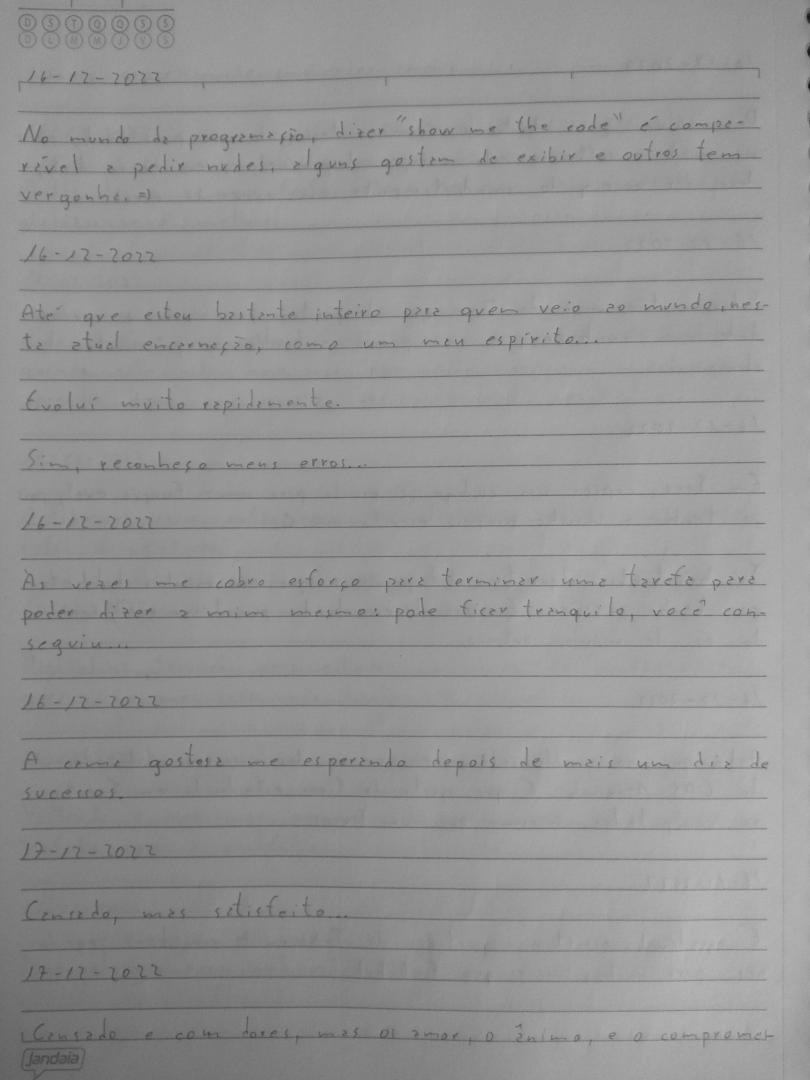 D S T Q Q S S
D L M M J V S
16-12-2022
No mundo da programação, dizer "show me the code" é compa-
rável a pedir nudes, alguns gostam de exibir e outros tem
vergonha. =)
16-12-2022
Até que estou bastante inteiro para quem veio ao mundo, nes-
ta atual encarnação, como um mau espírito...
Evoluí muito rapidamente.
Sim, reconheço meus erros...
16-12-2022
Às vezes me cobro esforço para terminar uma tarefa para
poder dizer a mim mesmo: pode ficar tranquilo, você con-
seguiu...
16-12-2022
A cama gostosa me esperando depois de mais um dia de
sucessos.
17-12-2022
Cansado, mas satisfeito...
17-12-2022
Cansado e com dores, mas o amor, o ânimo, e o compromet-
jandaia